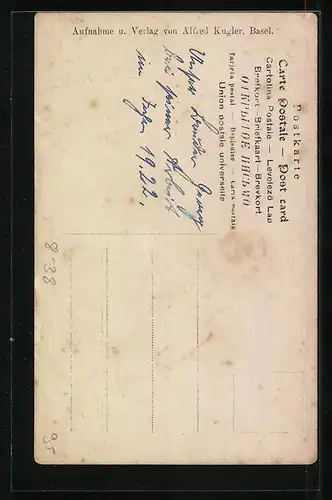 Aufnahme u. Verlag von Alfred Kugler, Basel.
Postkarte
Carte Postale — Post card
Cartolina Postale — Levelező Lap
Brefkort — Briefkaart — Brevkort
ОТКРЫТОЕ ПИСЬМО
Tarjeta postal — Dopisnice — Karta
Union postale universelle
Unser Bruder Georg
bei seiner Arbeit
im Jahre 1922.
8-38
95